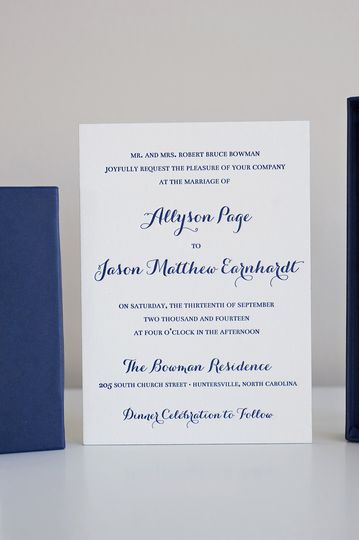 MR. AND MRS. ROBERT BRUCE BOWMAN
JOYFULLY REQUEST THE PLEASURE OF YOUR COMPANY
AT THE MARRIAGE OF
Allyson Page
TO
Jason Matthew Earnhardt
ON SATURDAY, THE THIRTEENTH OF SEPTEMBER
TWO THOUSAND AND FOURTEEN
AT FOUR O'CLOCK IN THE AFTERNOON
The Bowman Residence
205 SOUTH CHURCH STREET • HUNTERSVILLE, NORTH CAROLINA
Dinner Celebration to Follow